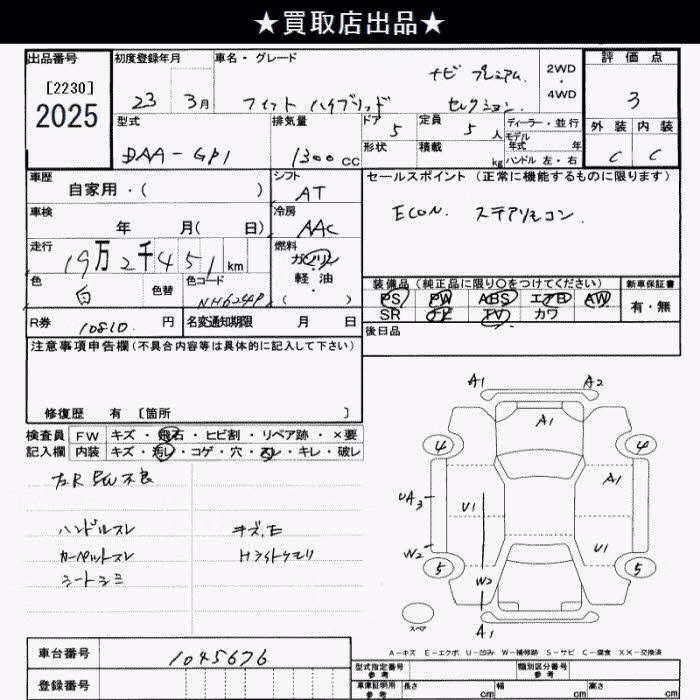 ★買取店出品★
出品番号 初度登録年月 車名・グレード 評価点
[2230] ナビ プレミアム 2WD
2025 23 3月 フィット ハイブリッド セレクション ・ 4WD 3
型式 排気量 ドア 定員 ディーラー・並行 外装 内装
DAA-GP1 1300 cc 5 5 人 モデル年式 年 C C
形状 積載 kg ハンドル 左・右
車歴 シフト セールスポイント (正常に機能するものに限ります)
自家用・( ) AT
車検 冷房 ECON. ステアリモコン.
年 月( 日) AAC
走行 燃料
19万2千451km ガソリン
色 色替 色コード 軽・油 装備品 (純正品に限り○をつけてください) 新車保証書
白 NH624P ( ) PS PW ABS エアB AW 有・無
R券 10810 円 名変通知期限 月 日 SR ナビ TV カワ
後日品
注意事項申告欄(不具合内容等は具体的に記入して下さい)
修復歴 有 [箇所 ]
検査員 FW キズ・飛石・ヒビ割・リペア跡・×要
記入欄 内装 キズ・汚レ・コゲ・穴・スレ・キレ・破レ
左R PW不良
ハンドルスレ キズ.E
カーペットスレ Hライトクモリ
シートシミ
A1 A2
A1
4 4
A1
UA3 U1
W2 U1
5 W2 5
スペア A1
A-キズ E-エクボ U-凹み W-補修跡 S-サビ C-腐食 XX-交換済
車台番号 1045676
型式指定番号 参考 類別区分番号 参考
登録番号 車庫証明用 参考 長さ cm 幅 cm 高さ cm